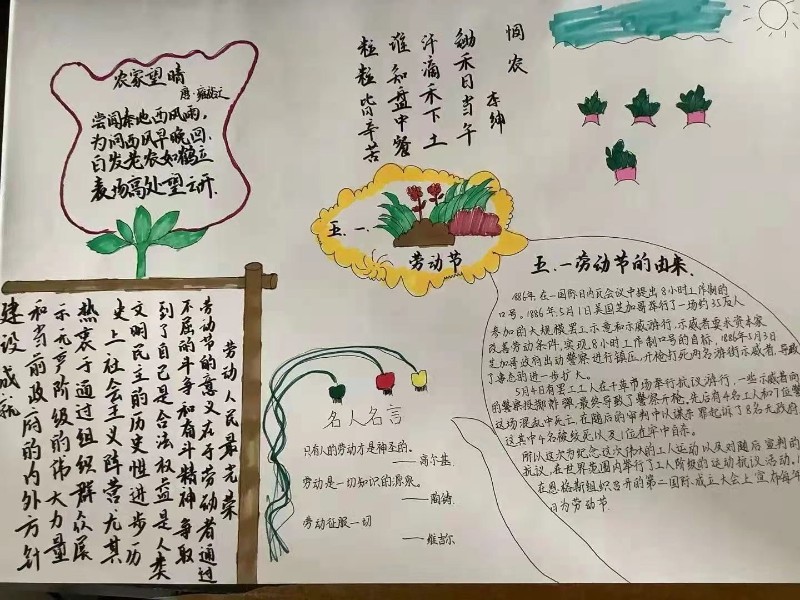 农家望晴
唐·雍裕之
尝闻秦地西风雨,
为问西风早晚回。
白发老农如鹤立
麦场高处望云开.
悯农
李绅
锄禾日当午
汗滴禾下土
谁知盘中餐
粒粒皆辛苦
五.一.
劳动节
劳动人民最光荣
劳动节的意义在于劳动者通过
不屈的斗争和奋斗精神争取
到了自己是合法权益是人类
文明民主的历史性进步功
史上社会主义阵营尤其
热衷于通过组织群众展
示无产阶级的伟大力量
和当前政府的内外方针
建设成就
名人名言
只有人的劳动才是神圣的。
——高尔基.
劳动是一切知识的源泉。
——陶铸.
劳动征服一切
——维吉尔
五.一劳动节的由来.
1886年在一国际日内瓦会议中提出8小时工作制的
口号。1886年5月1日美国芝加哥举行了一场约35万人
参加的大规模罢工示意和示威游行,示威者要求资本家
改善劳动条件,实现8小时工作制口号的目标,1886年5月3日
芝加哥政府出动警察进行镇压,开枪打死两名游街示威者,导致
了事态的进一步扩大。
5月4日有罢工工人在干草市场举行抗议游行,一些示威者向
的警察投掷炸弹,最终导致了警察开枪,先后有4名工人和7位警
这场混乱中死亡,在随后的审判中以谋杀罪起诉了8名无政府
这其中4名被绞死以及1位在牢中自杀。
所以这次为纪念这次伟大的工人运动以及对随后宣判的
抗议,在世界范围内举行了工人阶级的运动抗议活动。
在恩格斯组织召开的第二国际成立大会上宣布每年
日为劳动节.